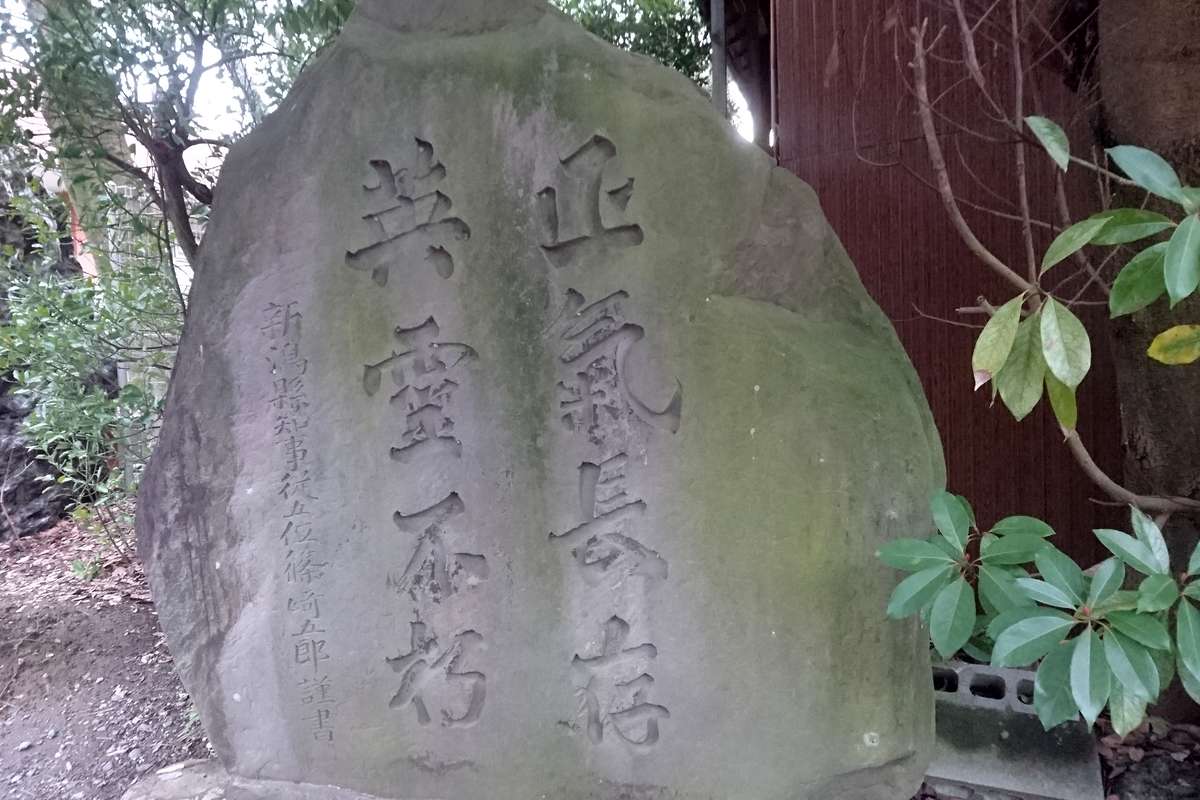 正氣長存
英霊不朽
新潟縣知事従五位篠崎五郎謹書